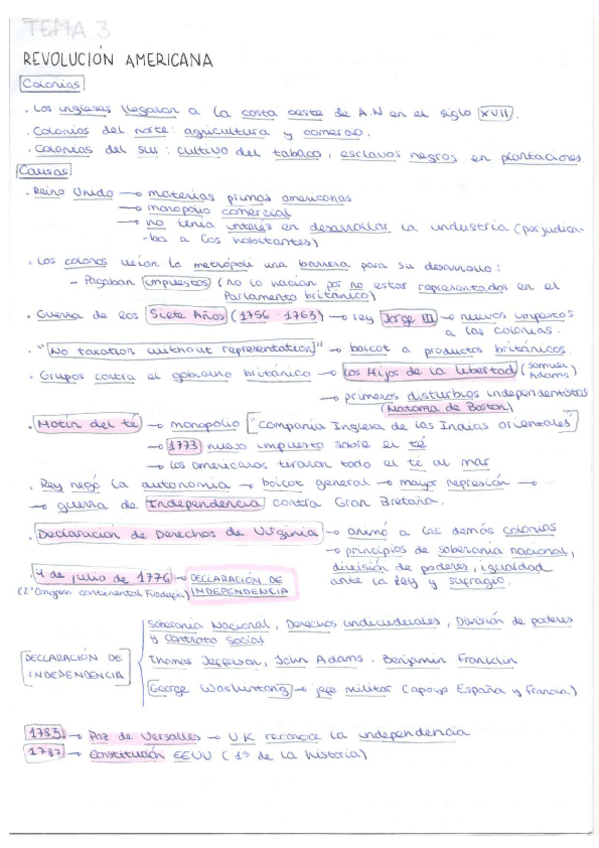 TEMA 3
REVOLUCIÓN AMERICANA
Colonias
· Los ingleses llegaron a la costa oeste de A.N en el siglo XVII.
· Colonias del norte: agricultura y comercio.
· Colonias del sur: cultivo del tabaco, esclavos negros en plantaciones
Causas
· Reino Unido → materias primas americanas
→ monopolio comercial
→ no tenía interés en desarrollar la industria (perjudica-
-ba a los habitantes)
· Los colonos veían la metrópole una barrera para su desarrollo:
- Pagaban impuestos (no lo hacían por no estar representados en el
Parlamento británico)
· Guerra de los Siete Años (1756 - 1763) → rey Jorge III → nuevos impuestos
a las colonias.
· "No taxation without representation" → boicot a productos británicos.
· Grupos contra el gobierno británico → Los Hijos de la libertad (Samuel
Adams)
→ primeros disturbios independentistas
(Matanza de Boston)
· Motín del té → monopolio "Compañía Inglesa de las Indias orientales"
→ 1773 nuevo impuesto sobre el té
→ los americanos tiraron todo el té al mar
· Rey negó la autonomía → boicot general → mayor represión →
→ guerra de Independencia contra Gran Bretaña.
· Declaración de Derechos de Virginia → animó a las demás colonias
→ principios de soberanía nacional,
división de poderes, igualdad
ante la ley y sufragio.
· 4 de julio de 1776 → DECLARACIÓN DE
(2º Congreso continental Filadelfia) INDEPENDENCIA
Soberanía Nacional, Derechos individuales, División de poderes
y Contrato social
DECLARACIÓN DE
INDEPENDENCIA
Thomas Jefferson, John Adams, Benjamin Franklin
George Washintong → jefe militar (apoyo España y Francia)
1783 → Paz de Versalles → UK reconoce la independencia
1787 → Constitución EEUU (1ª de la historia)